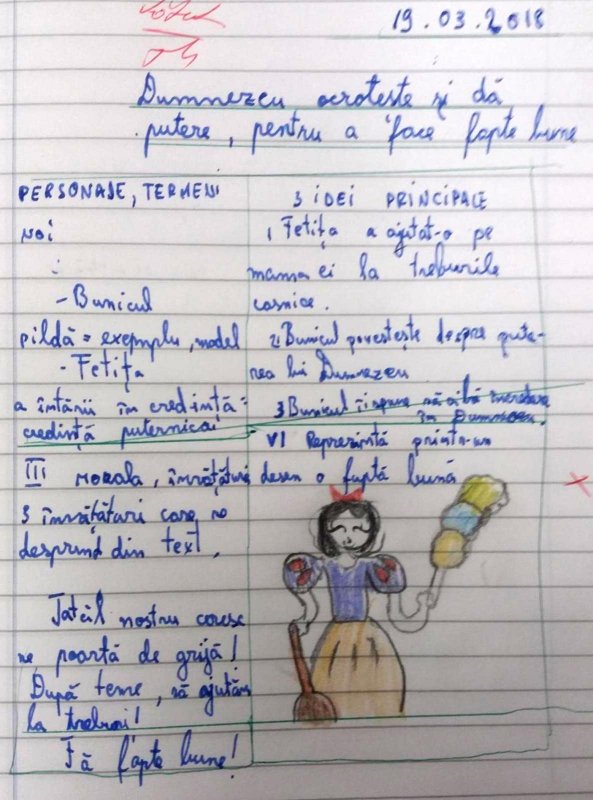 19.03.2018
Dumnezeu ocrotește și dă
putere, pentru a face fapte bune
PERSONAJE, TERMENI
NOI
:
- Bunicul
pildă = exepmplu, model
- Fetița
a întării în credință =
credință puternică
III MORALA, învățături
3 învățături care se
desprind din text.
Tatăl nostru ceresc
ne poartă de grijă!
După teme, să ajutăm
la treburi!
Fă fapte bune!
3 IDEI PRINCIPALE
1 Fetița a ajutat-o pe
mama ei la treburile
casnice.
2. Bunicul povestește despre pute-
rea lui Dumnezeu
3 Bunicul îi spune să aibă încredere
în Dumnezeu.
VI Reprezintă printr-un
desen o faptă bună